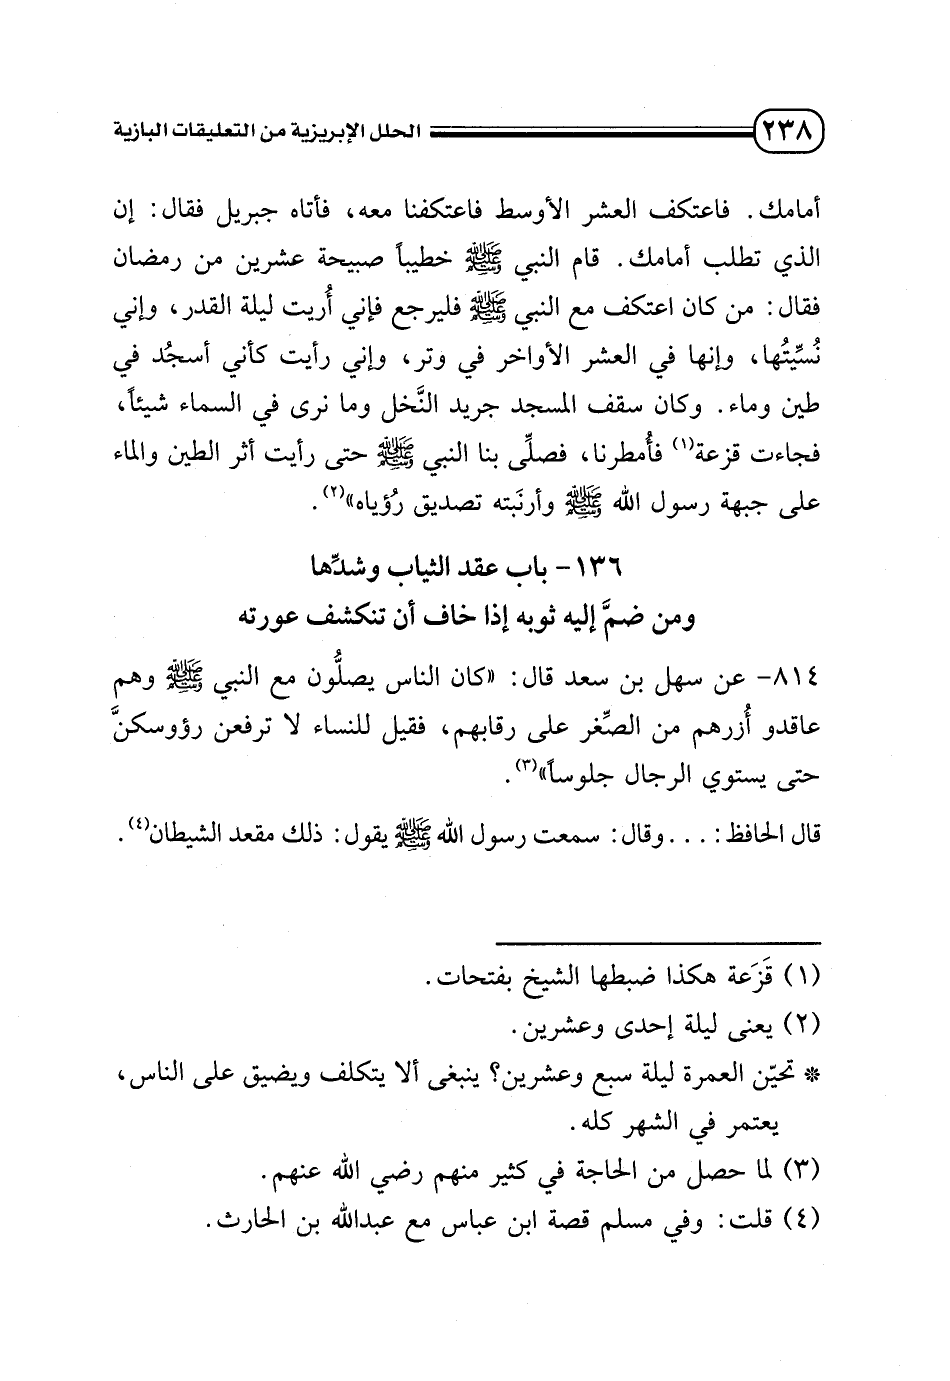 ٢٣٨ الحلل الإبريزية من التعليقات البازية
أمامك. فاعتكف العشر الأوسط فاعتكفنا معه، فأتاه جبريل فقال: إن
الذي تطلب أمامك. قام النبي ﷺ خطيباً صبيحة عشرين من رمضان
فقال: من كان اعتكف مع النبي ﷺ فليرجع فإني أُريت ليلة القدر، وإني
نُسِّيتُها، وإنها في العشر الأواخر في وتر، وإني رأيت كأني أسجُد في
طين وماء. وكان سقف المسجد جريد النَّخل وما نرى في السماء شيئاً،
فجاءت قزعة(١) فأُمطرنا، فصلِّى بنا النبي ﷺ حتى رأيت أثر الطين والماء
على جبهة رسول الله ﷺ وأرنَبته تصديق رُؤياه»(٢).
١٣٦- باب عقد الثياب وشدِّها
ومن ضمَّ إليه ثوبه إذا خاف أن تنكشف عورته
٨١٤- عن سهل بن سعد قال: «كان الناس يصلُّون مع النبي ﷺ وهم
عاقدو أُزرهم من الصِّغر على رقابهم، فقيل للنساء لا ترفعن رؤوسكنَّ
حتى يستوي الرجال جلوساً»(٣).
قال الحافظ: ... وقال: سمعت رسول الله ﷺ يقول: ذلك مقعد الشيطان(٤).
(١) قَزَعة هكذا ضبطها الشيخ بفتحات.
(٢) يعنى ليلة إحدى وعشرين.
* تحيّن العمرة ليلة سبع وعشرين؟ ينبغى ألا يتكلف ويضيق على الناس،
يعتمر في الشهر كله.
(٣) لما حصل من الحاجة في كثير منهم رضي الله عنهم.
(٤) قلت: وفي مسلم قصة ابن عباس مع عبدالله بن الحارث.